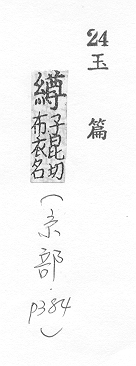 24
玉篇
繜 子昆切
布衣名
(糸部.p384)